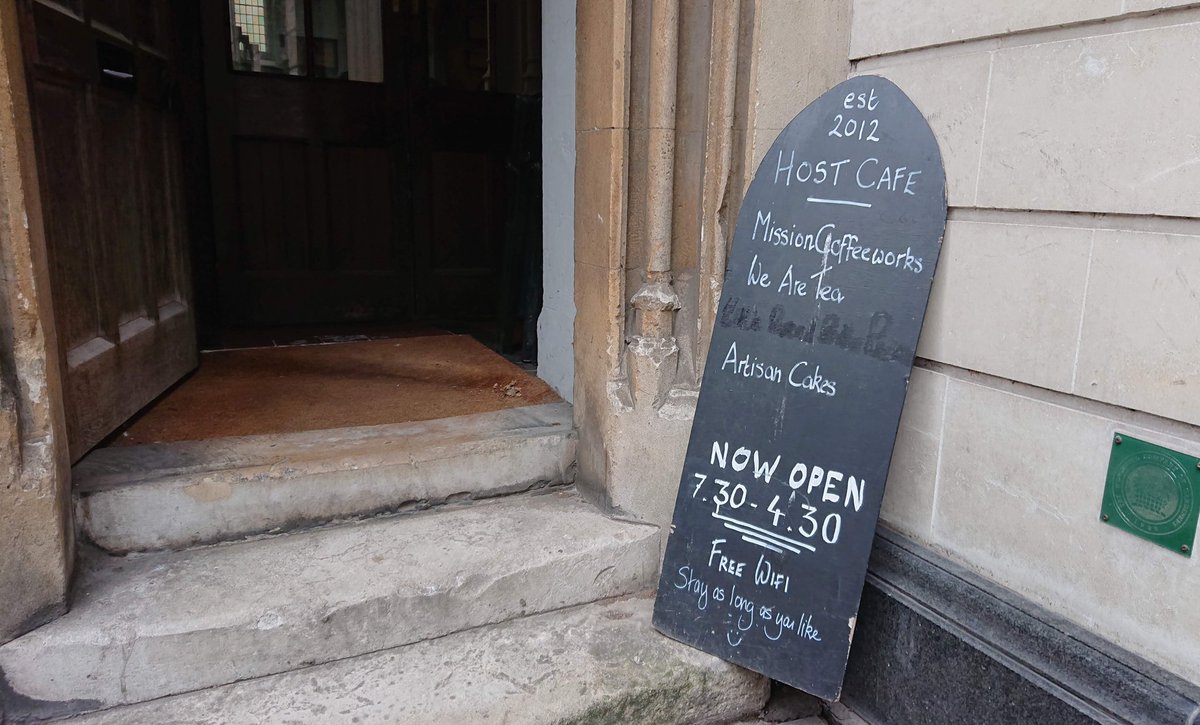 est
2012
HOST CAFE
Mission Coffeeworks
We Are Tea
Artisan Cakes
NOW OPEN
7.30-4.30
FREE WIFI
Stay as long as you like